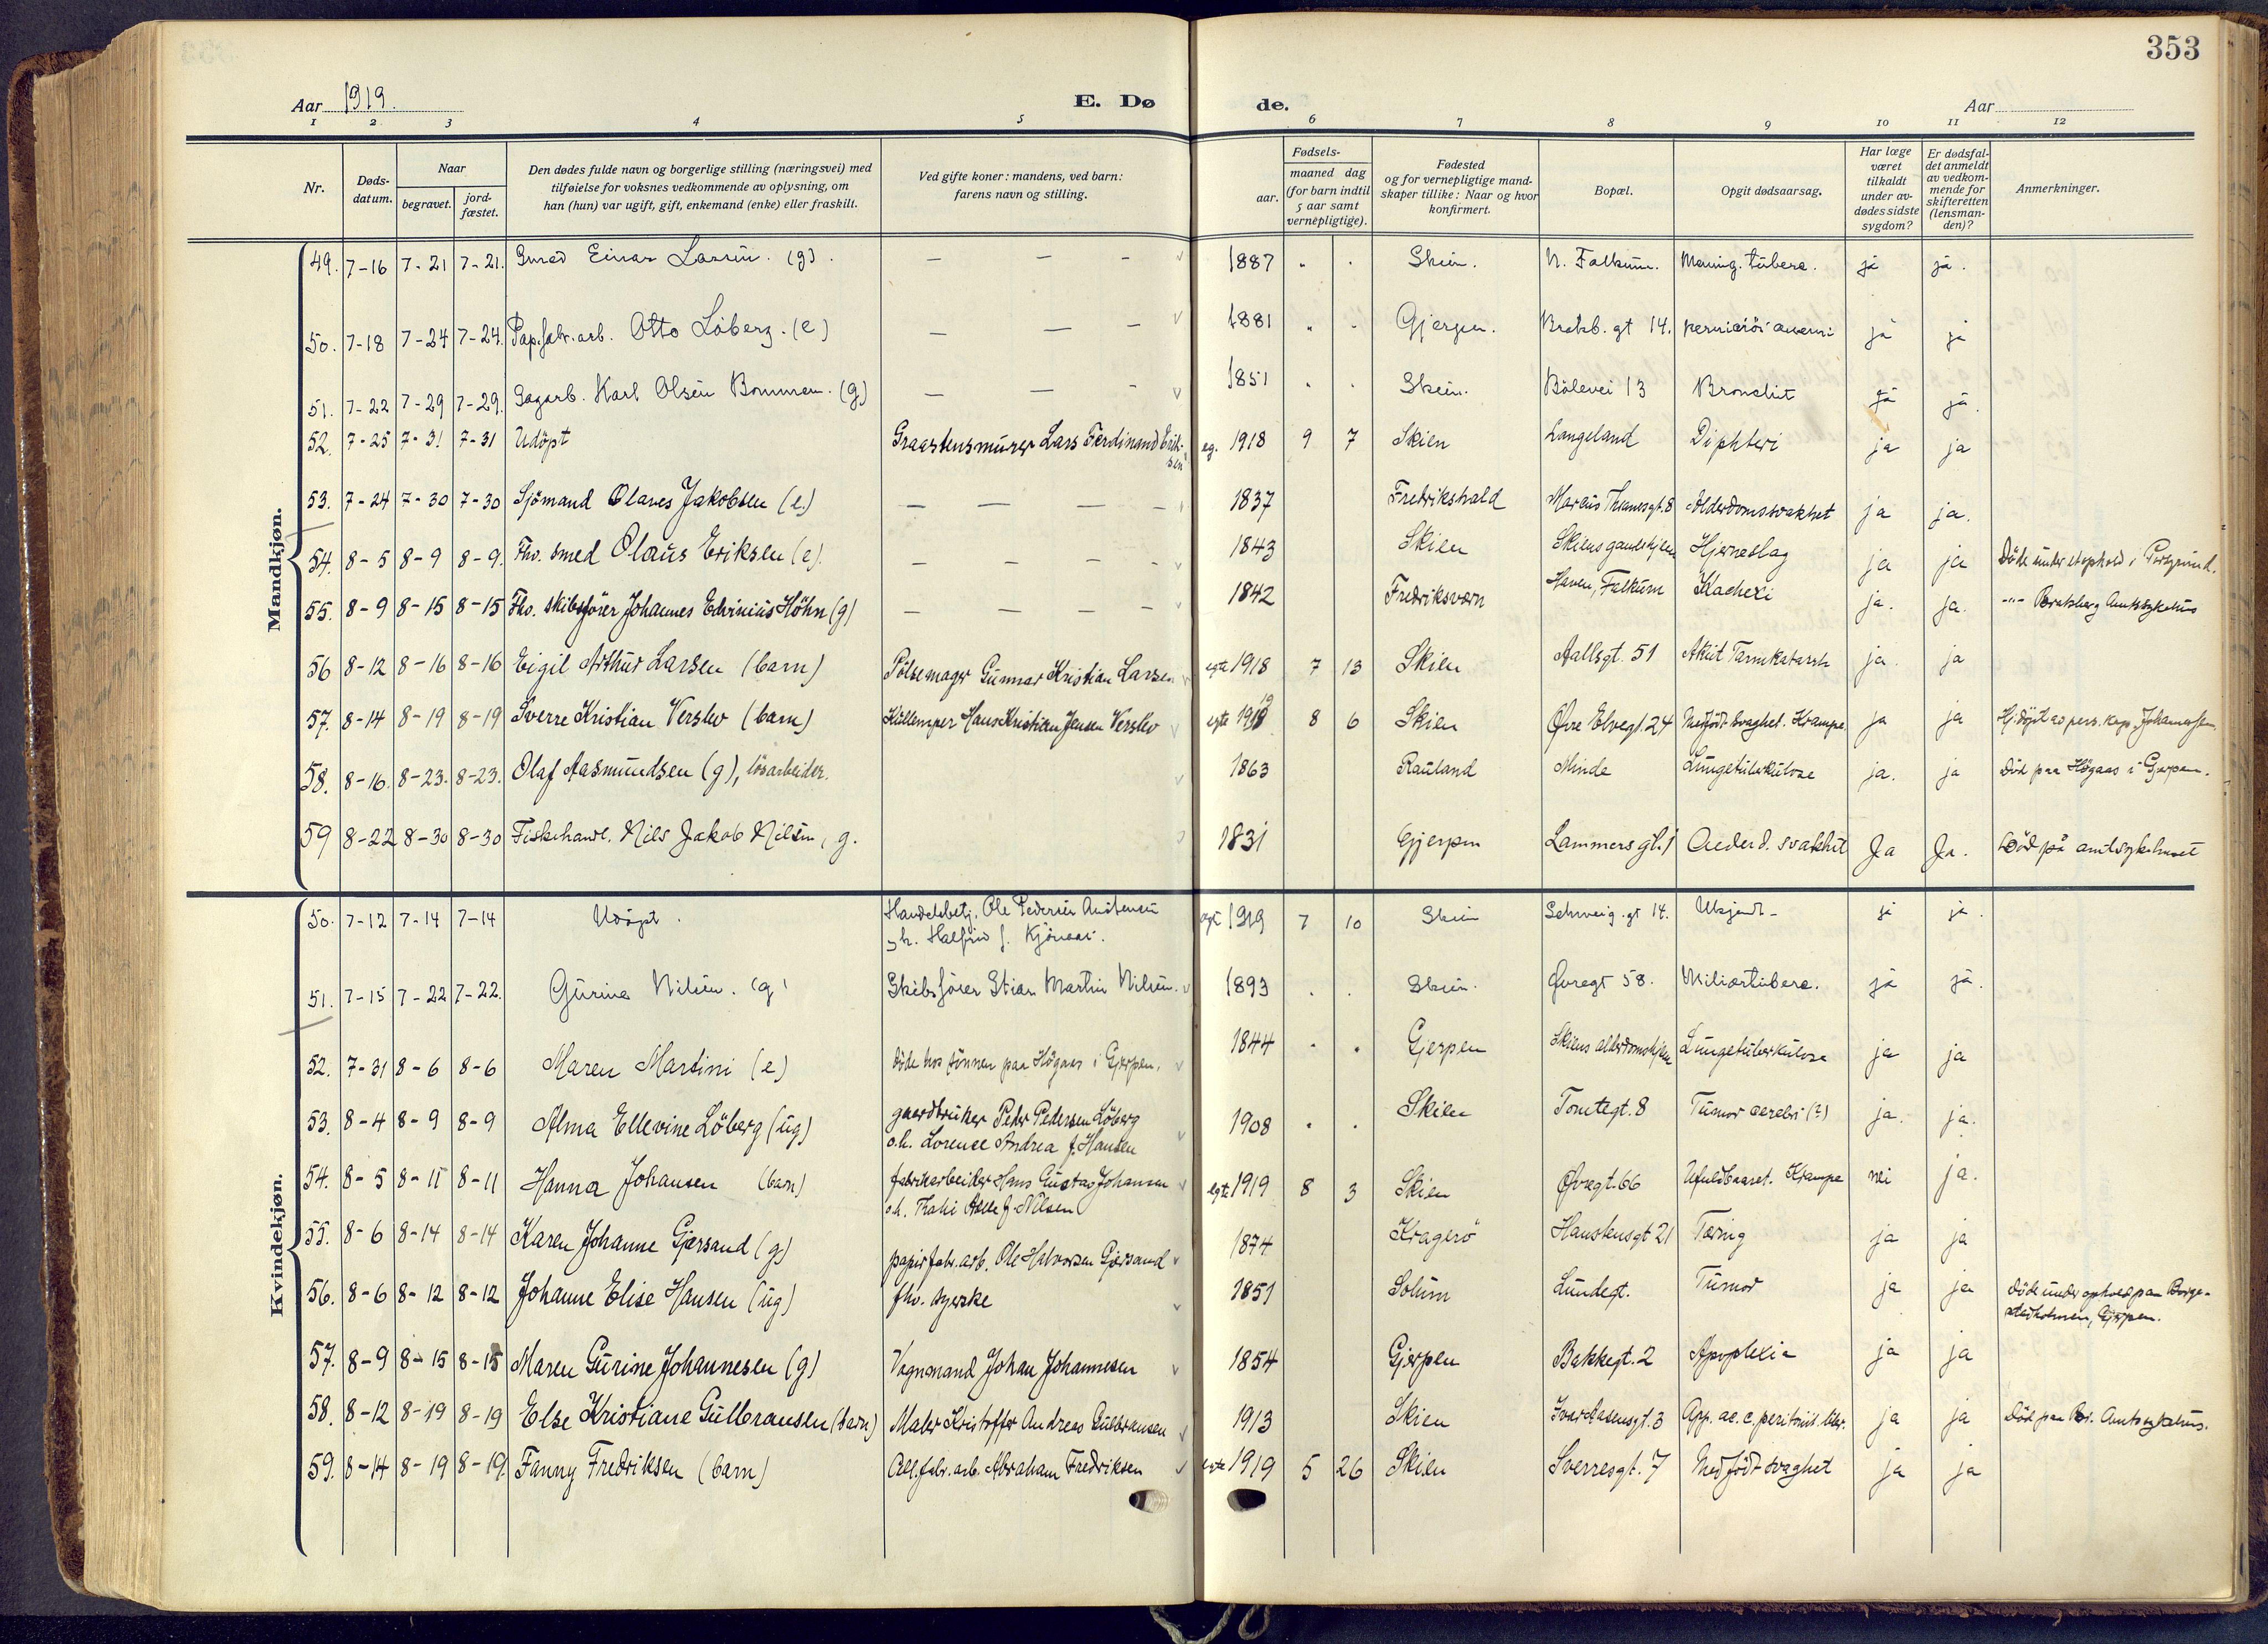 353
Aar 1919. E. Dø de. Aar
1 2 3 4 5 6 7 8 9 10 11 12
Nr. Døds-datum. Naar begravet. jord-fæstet. Den dødes fulde navn og borgerlige stilling (næringsvei) med tilføielse for voksnes vedkommende av oplysning, om han (hun) var ugift, gift, enkemand (enke) eller fraskilt. Ved gifte koner: mandens, ved barn: farens navn og stilling. Fødsels- aar. maaned dag (for barn indtil 5 aar samt vernepligtige). Fødested og for vernepligtige mand-skaper tillike: Naar og hvor konfirmert. Bopæl. Opgit dødsaarsag. Har læge været tilkaldt under av-dødes sidste sygdom? Er dødsfal-det anmeldt av vedkom-mende for skifteretten (lensman-den)? Anmerkninger.
Mandkjøn.
49. 7-16 7-21 7-21. Einar Larsen. (g). — — — 1887 Skien. N. Falkum. Mening. tuberc. ja ja.
50. 7-18 7-24 7-24. Pap.fabr.arb. Otto Löberg. (e) — — — 1881 Gjerpen. Bratsb. gt 14. perniciös anemi ja ja
51. 7-22 7-29 7-29. Sagarb. Karl Olsen Bommen. (g) — — — 1851 Skien. Bölevei 13 Bronchit ja ja.
52. 7-25 7-31 7-31 Udöpt Graastensmurer Lars Ferdinand Erik-sen eg. 1918 9 7 Skien Langeland Diphteri ja ja
53. 7-24 7-30 7-30 Sjömand Olaves Jakobsen (e.) — — — — 1837 Fredrikshald Marcus Thranesgt. 8 Alderdomssvakhet ja ja.
54. 8-5 8-9 8-9. Fhv. smed Olaus Eriksen (e). — — — — 1843 Skien Skiens gamlehjem Hjerneslag ja ja Döde under et ophold i Porsgrund.
55. 8-9 8-15 8-15 Fhv. skibsförer Johannes Edvinius Höhn (g) — — — — 1842 Fredriksværn Haven, Falkum Kachexi ja. ja. -"- Bratsberg Amtssykehus
56 8-12 8-16 8-16 Eigil Arthur Larsen (barn) Pölsemager Gunnar Kristian Larsen egte 1918 7 13 Skien Aallsgt. 51 Akut Tarmkatarrh ja. ja
57. 8-14 8-19 8-19 Sverre Kristian Verslev (barn) Kullemper Hans Kristian Jensen Verslev egte 1919 8 6 Skien Øvre Elvegt. 24 Medfödt svaghet. Krampe ja ja Hj.döpt av pers. kap. Johannessen.
58. 8-16. 8-23. 8-23. Olaf Aasmundsen (g), lösarbeider. 1863 Rauland Minde Lungetuberkulose ja. ja Död paa Högaas i Gjerpen.
59 8-22 8-30 8-30 Fiskehandl. Nils Jakob Nilsen, g. 1831 Gjerpen Lammersgt. 1 Alderd. svakhet Ja Ja. Död på amtssykehuset
Kvindekjøn.
50. 7-12 7-14 7-14 Udöpt. Handelsbetj. Ole Pedersen egt 1919 7 10 Skien Schweig. gt 14. Ukjendt - ja ja.
51. 7-15 7-22 7-22. Gurine Nilsen. (g) Skibsförer Stian Martin Nilsen. 1893 Skien. Øvregt 58. Miliærtuberc. ja ja.
52. 7-31 8-6 8-6 Maren Martini (e) Döde hos sönnen paa Högaas i Gjerpen. 1844 Gjerpen Skiens alderdomshjem Lungetuberkulose ja ja
53. 8-4 8-9 8-9 Alma Ellevine Löberg (ug) gaardbruker Peder Pedersen Löberg
o.h. Lorence Andrea f. Hansen 1908 Skien Tomtegt. 8 Tumor cerebri (?) ja. ja.
54. 8-5 8-11 8-11 Hanna Johansen (barn) fabrikarbeider Hans Gustav Johansen
o.h. f. Nilsen egte 1919 8 3 Skien Øvregt. 66 Ufuldbaaret. Krampe nei ja.
55. 8-6 8-14 8-14 Karen Johanne Gjersand (g) papirfabr.arb. Ole Halvorsen Gjersand 1874 Kragerö Hauskensgt 21 Tæring ja ja
56. 8-6 8-12 8-12 Johanne Elise Hansen (ug) fhv. syerske 1851 Solum Lundegt. Tumor ja ja Döde under ophold paa Borge-
stadholmen, Gjerpen.
57. 8-9 8-15 8-15 Maren Gurine Johannesen (g) Vognmand Johan Johannesen 1854 Gjerpen Bakkegt. 2 Apoplexia ja ja
58. 8-12 8-19 8-19 Else Kristiane Gulbransen (barn) Maler Kristoffer Andreas Gulbransen 1913 Skien Ivar Aasensgt. 3 App. ac. c. peritonit. liber. ja ja Död paa Br. Amtssykehus.
59. 8-14 8-19 8-19. Fanny Fredriksen (barn) Cell.fabr.arb. Abraham Fredriksen egte 1919 5 26 Skien Sverresgt. 7 Medfödt svaghet ja ja